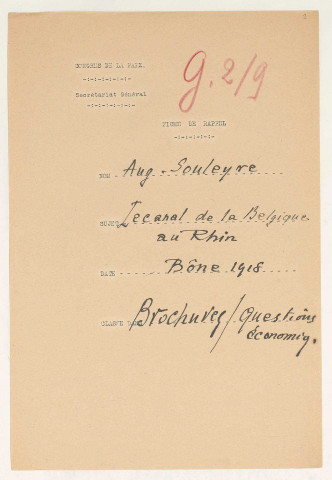 CONGRES DE LA PAIX.
-:-:-:-:-:-:-
Secretariat Général
-:-:-:-:-:-
G. 2/9
FICHE DE RAPPEL
-:-:-:-:-
NOM Aug. Souleyre
SUJET Le canal de la Belgique
au Rhin
DATE Bône 1918
CLASSE DANS Brochures / Questions
économiq.